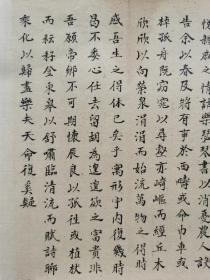 悅親戚之情話樂琴書以消憂農人
告余以春及將有事於西疇或命巾車或
棹孤舟既窈窕以尋壑亦崎嶇而經丘木
欣欣以向榮泉涓涓而始流萬物之得時
感吾生之行休已矣乎寓形宇內復幾時
曷不委心任去留胡為遑遑欲之富貴非
吾願帝鄉不可期懷良辰以孤往或植杖
而耘耔登東皋以舒嘯臨清流而賦詩聊
乘化以歸盡樂夫天命復奚疑